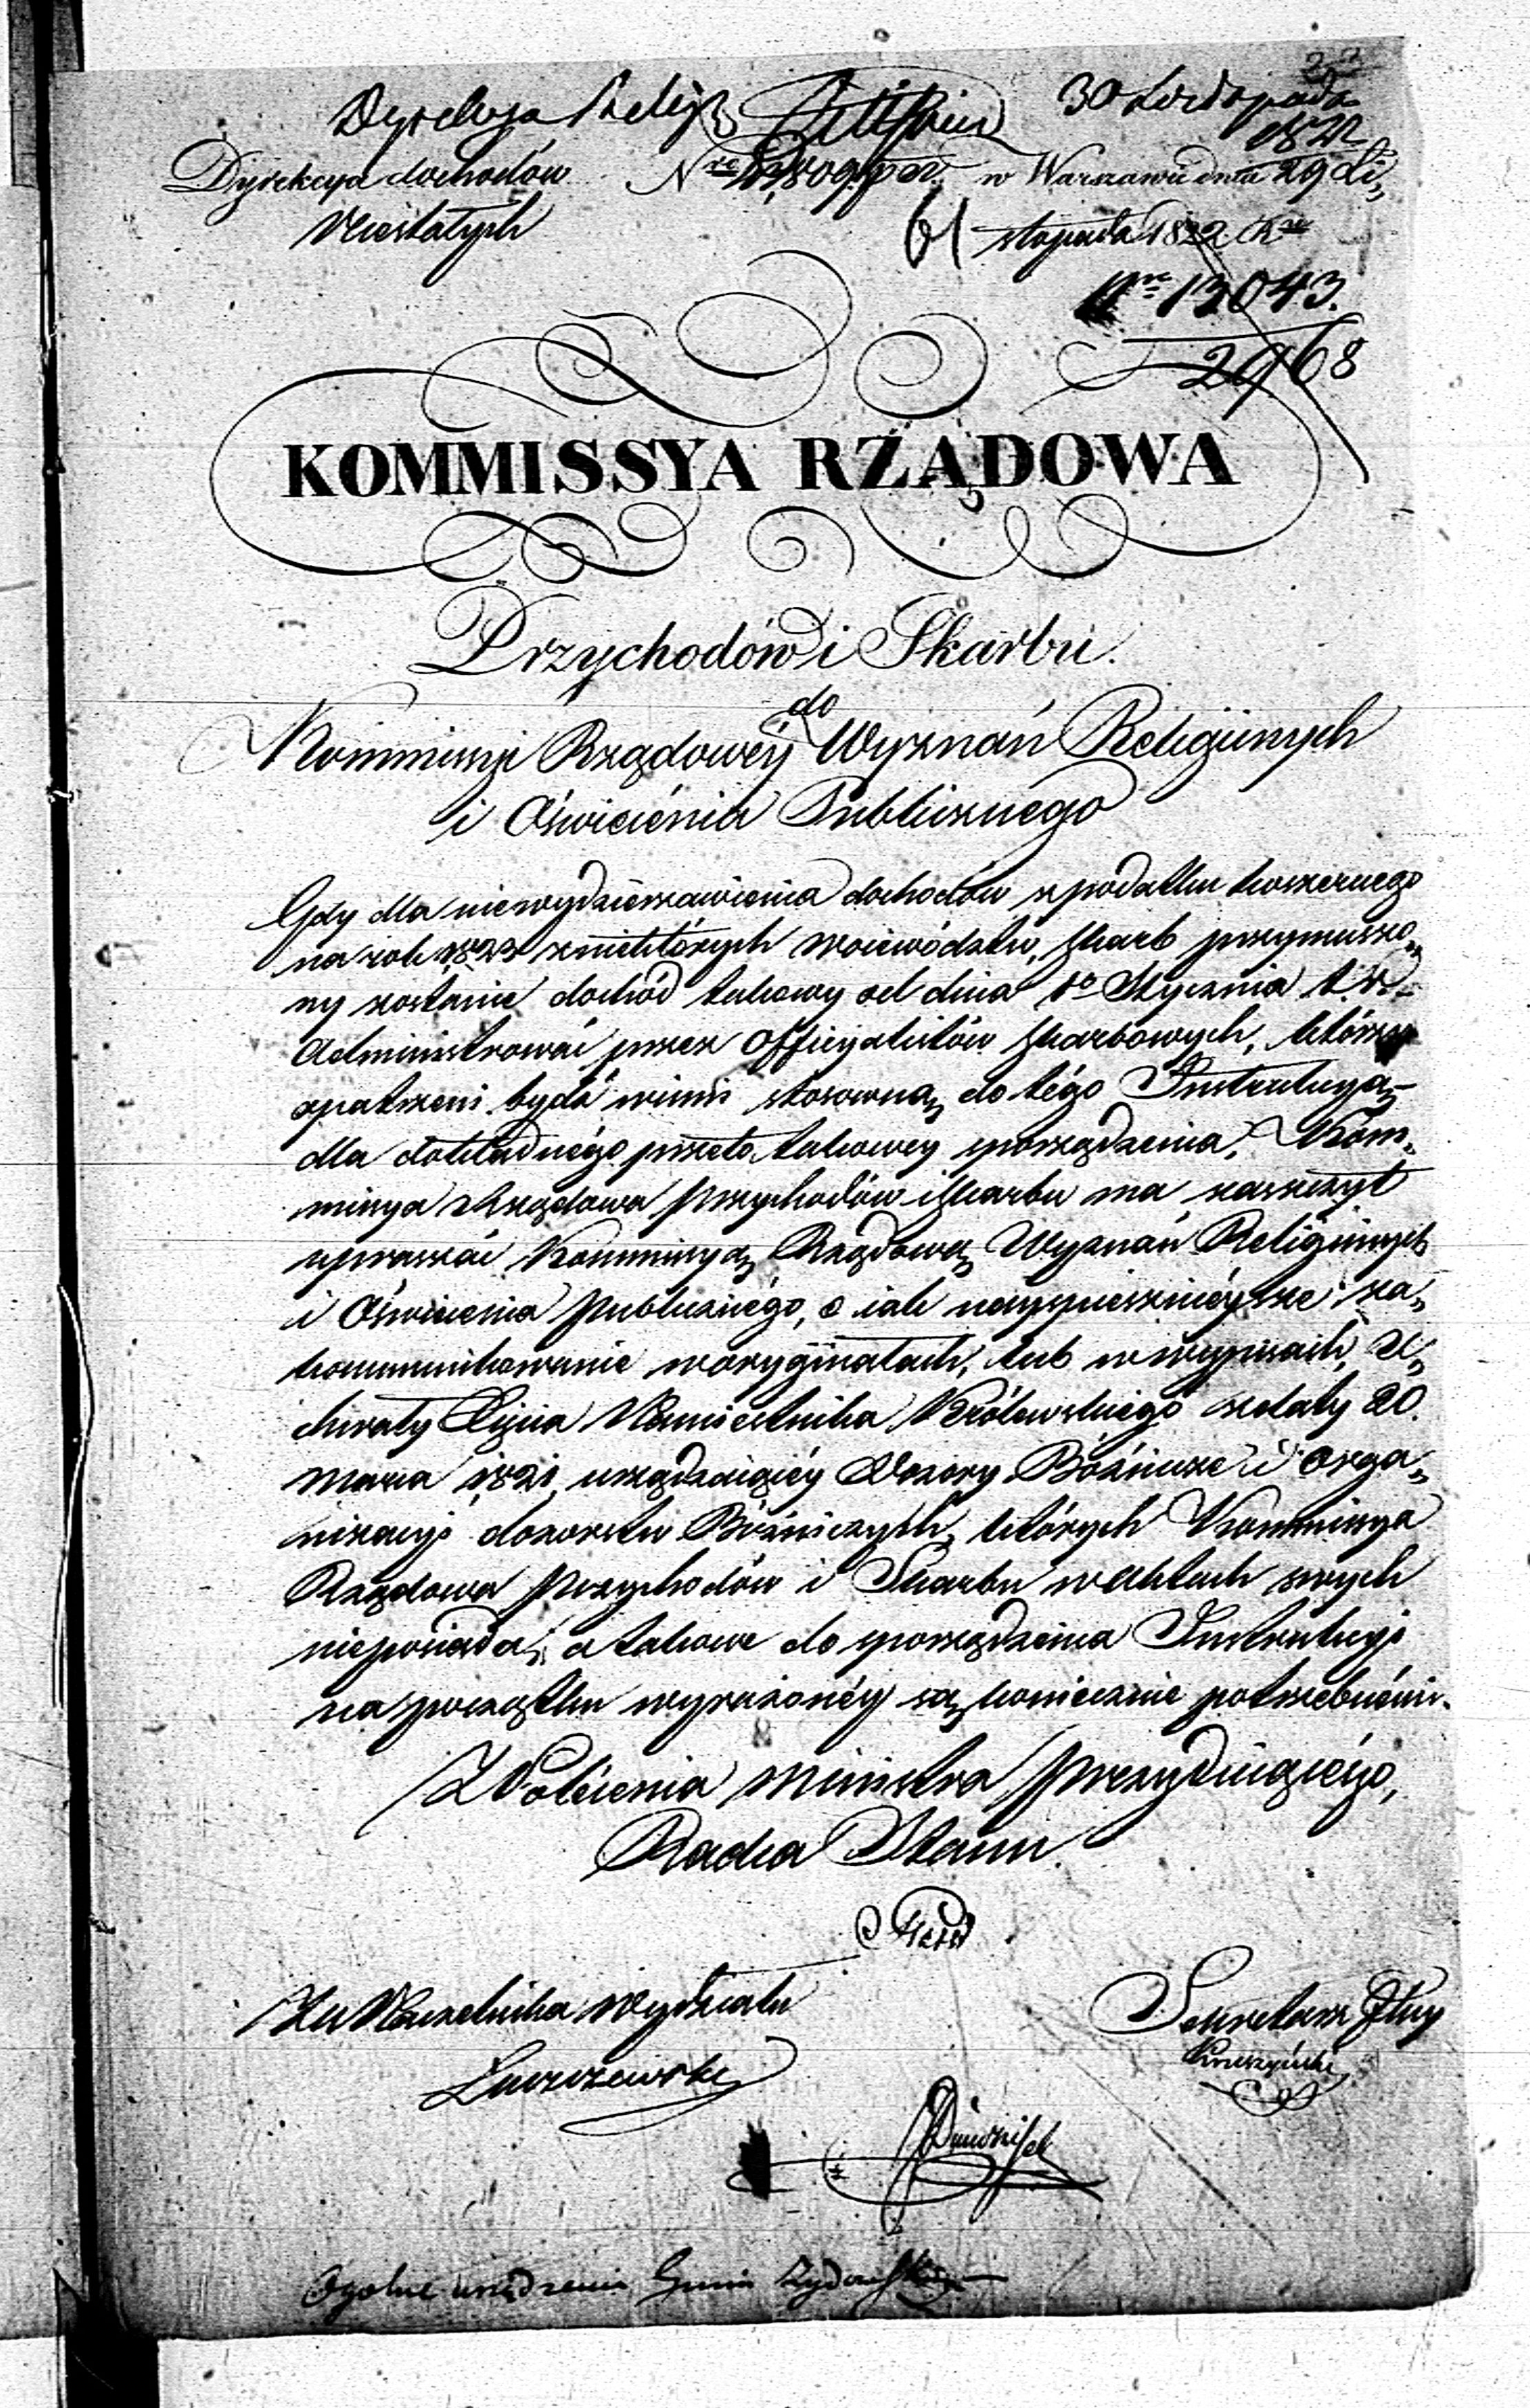 30 Listopada
1822
Dyrekcya dochodów Nro w Warszawie dnia 29 Li=
Niestałych 61 stopada 1822 Ru
Nro 13043.
2968
KOMMISSYA RZĄDOWA
Przychodów i Skarbu.
do
Kommissyi Rządowéy Wyznań Religiinych
i Oświecénia Publicznego
Gdy dla niewydzierżawienia dochodów z podatku koszernego
na rok 1823 z niektórych woiewództw, Skarb przymuszo=
ny zostanie dochód takowy od dnia 1o Stycznia t. r.
Administrować przez Officyalistów Skarbowych, którzy
opatrzeni bydź winni stosowną do tégo Instrukcyą
dla dokładnégo przeto takowey sporządzenia, Kom=
missya Rządowa Przychodów i Skarbu ma zaszczyt
upraszać Kommissyą Rządową Wyznań Religiinych
i Oświecenia Publicznégo, o iak nayspiesznieysze za=
kommunikowanie w oryginałach, lub w wypisach, U=
chwały Xięcia Namiestnika Królewskiego z daty 20.
Marca 1821 urządzaiącéy Dozory Bóżnicze i orga=
nizacyi dozorstw Bóżniczych, których Kommissya
Rządowa Przychodów i Skarbu w Aktach swych
nieposiada, a takowe do sporządzenia Instrukcyi
na początku wyrażonéy są koniecznie potrzebnémi.
Z Polécenia Ministra Prezyduiącégo,
Radca Stanu
Za Naczelnika Wydziału Sekretarz Jlny
Łuszczewski Kruszyński
Ogolne urządzenia Gmin Żydowskich